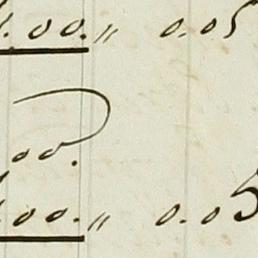 1.00. „ 0.05
00.
.00. „ 0.05